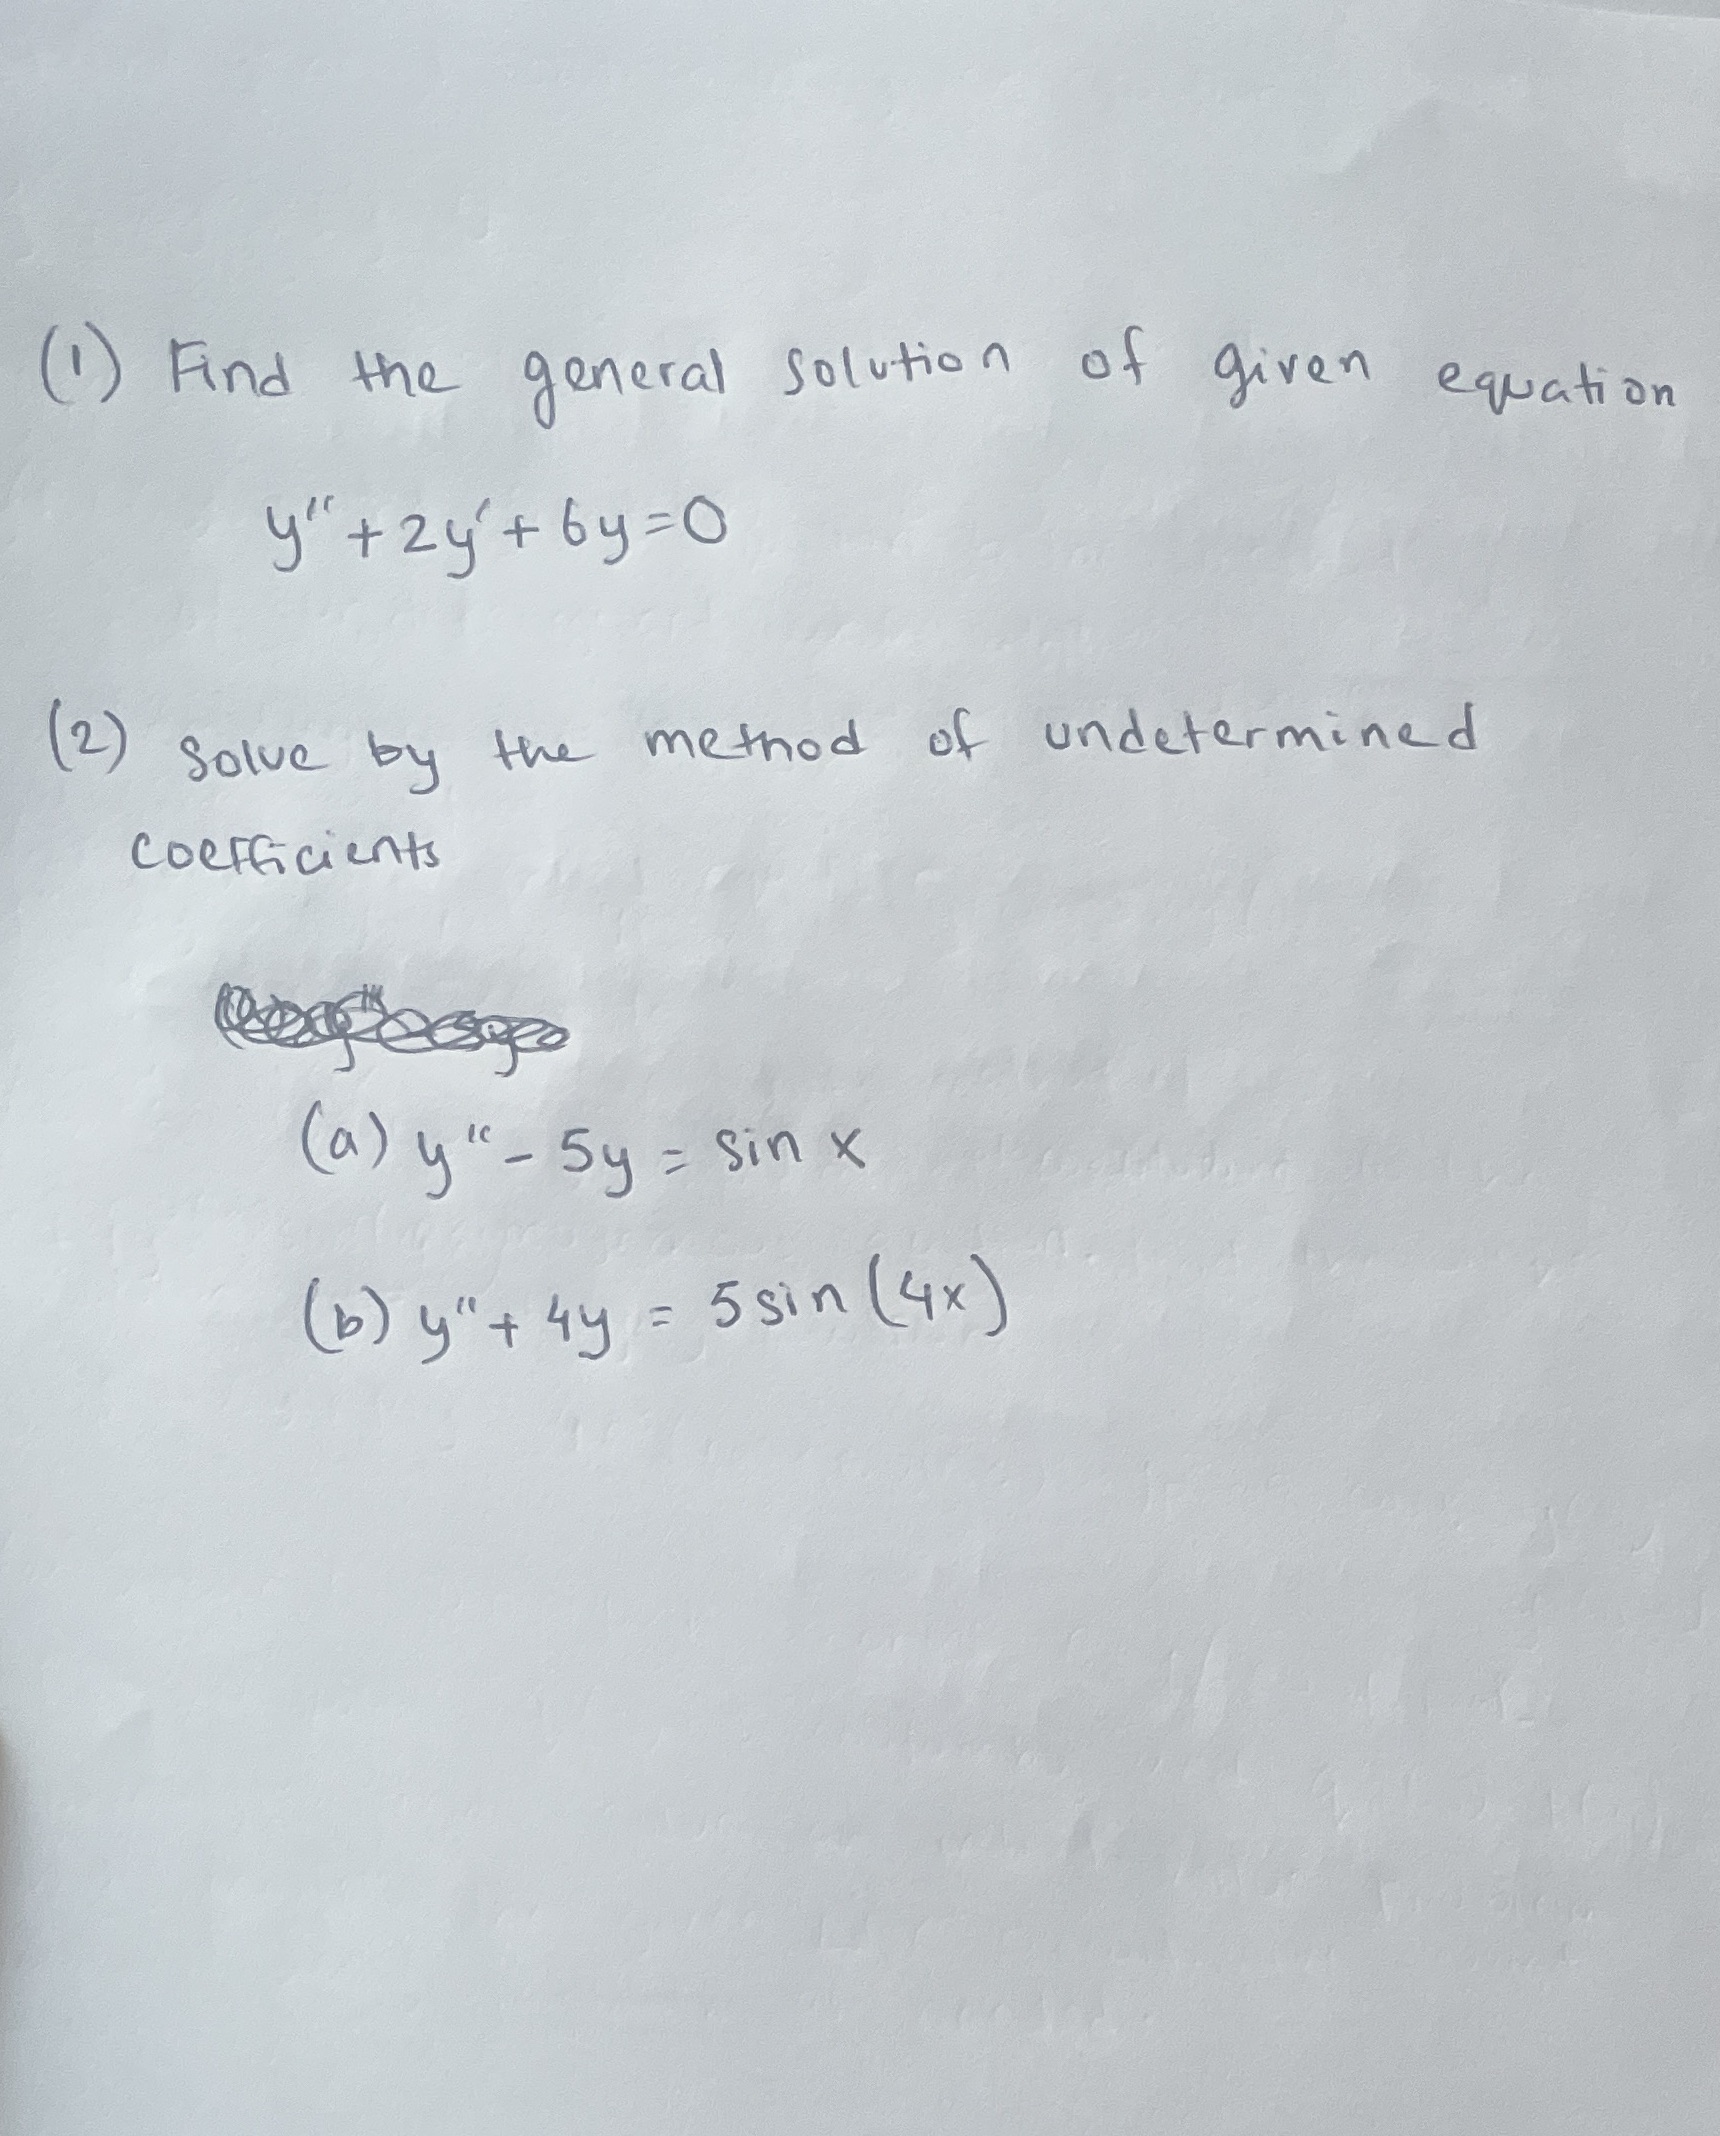 (1) Find the general solution of given equation
y'' + 2y' + 6y = 0
(2) Solve by the method of undetermined
coefficients
(a) y'' - 5y = sin x
(b) y'' + 4y = 5 sin (4x)